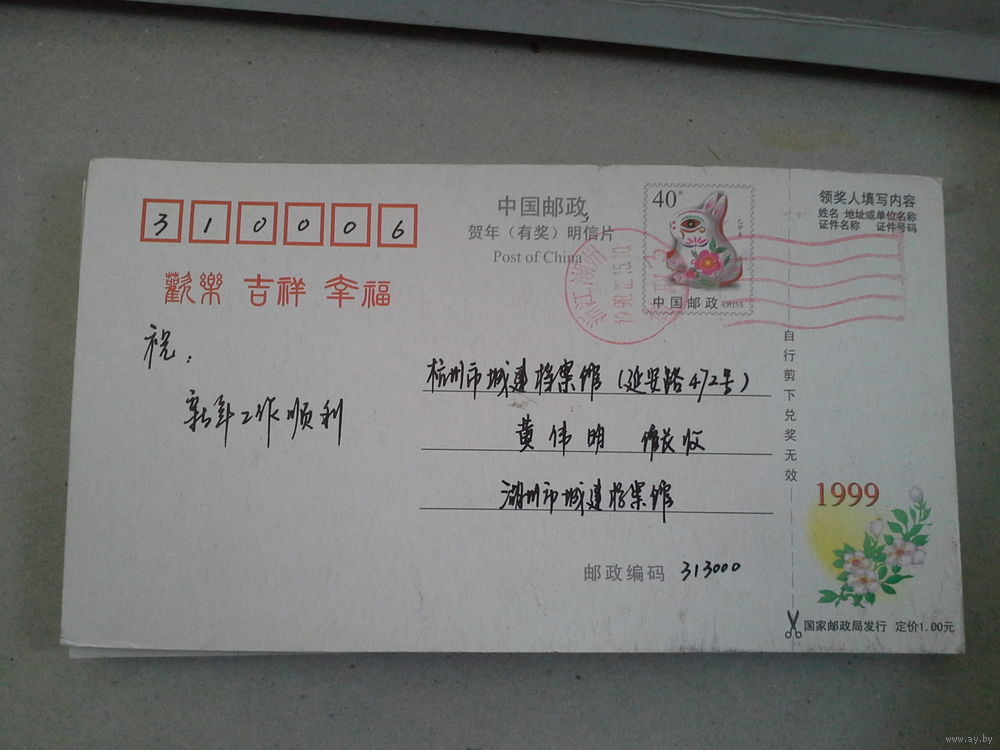 310006
中国邮政
贺年（有奖）明信片
Post of China
40
中国邮政 CHINA
领奖人填写内容
姓名 地址或单位名称
证件名称 证件号码
歡樂 吉祥 幸福
祝：
新年工作顺利
杭州市城建档案馆（延安路472号）
黄伟明 馆长收
湖州市城建档案馆
邮政编码 313000
自行剪下兑奖无效
1999
国家邮政局发行 定价1.00元
浙江湖州
www.ay.by